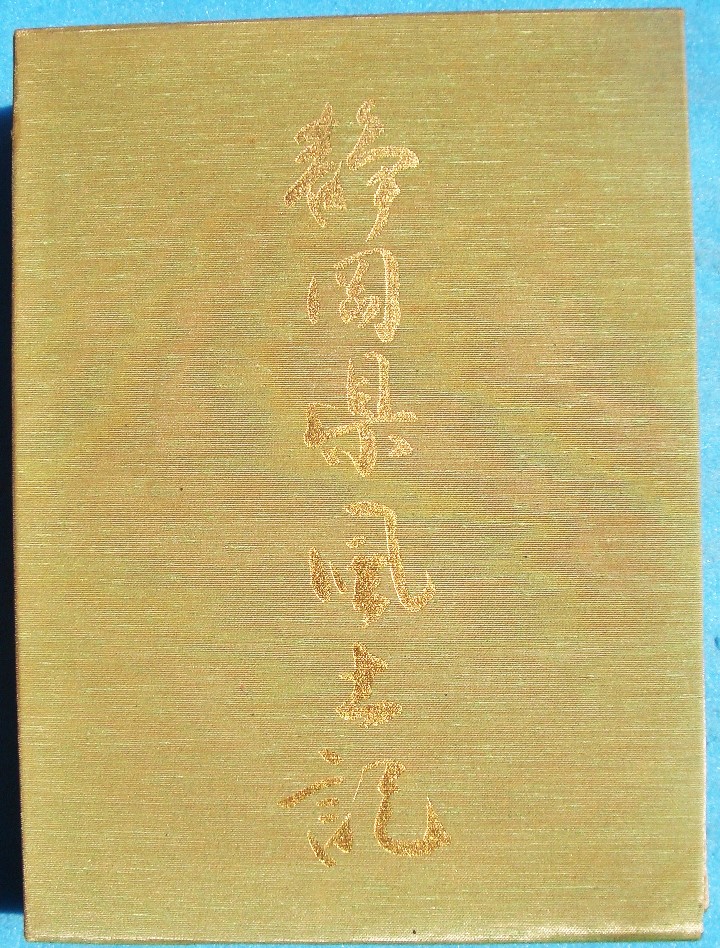 静岡県風土記